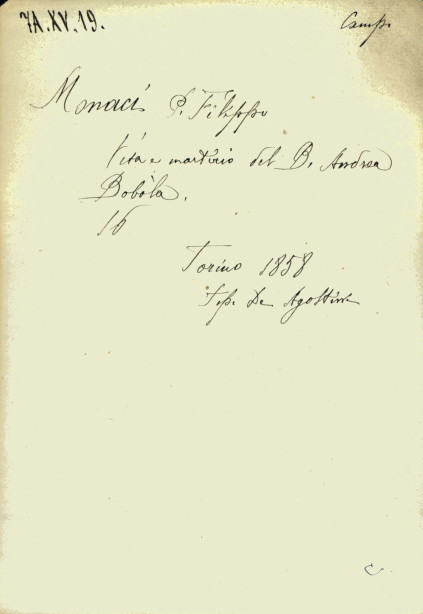 7A.XV.19.
Camp.
Monaci P. Filippo
Vita e martirio del B. Andrea
Bobola.
16
Torino 1858
Tip. De Agostini